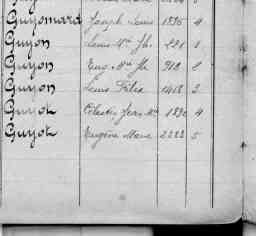 Guyomard Joseph Louis 1895 4
Guyon Louis Mie Jh. 221 1
Guyon Eug. Mie Jh 912 1
Guyon Louis Félix 1468 2
Guyot Célestin Jean Mie 1890 4
Guyot Eugène Marie 2222 5